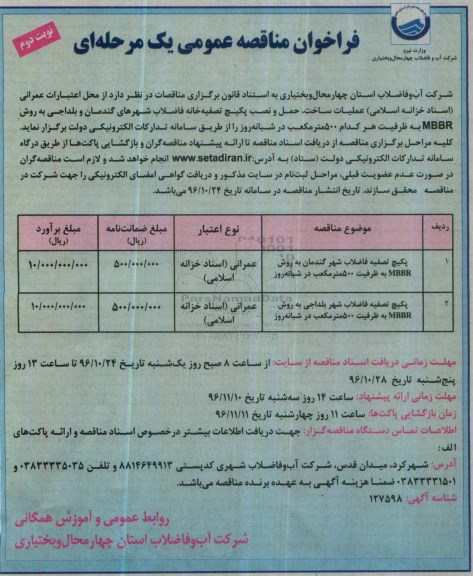 وزارت نیرو
شرکت آب و فاضلاب چهارمحال‌وبختیاری
نوبت دوم
فراخوان مناقصه عمومی یک مرحله‌ای
شرکت آب‌وفاضلاب استان چهارمحال‌وبختیاری به استناد قانون برگزاری مناقصات در نظر دارد از محل اعتبارات عمرانی
(اسناد خزانه اسلامی) عملیات ساخت، حمل و نصب پکیج تصفیه‌خانه فاضلاب شهرهای گندمان و بلداجی به روش
MBBR به ظرفیت هر کدام ۵۰۰مترمکعب در شبانه‌روز را از طریق سامانه تدارکات الکترونیکی دولت برگزار نماید.
کلیه مراحل برگزاری مناقصه از دریافت اسناد مناقصه تا ارائه پیشنهاد مناقصه‌گران و بازگشایی پاکت‌ها از طریق درگاه
سامانه تدارکات الکترونیکی دولت (ستاد) به آدرس: www.setadiran.ir انجام خواهد شد و لازم است مناقصه‌گران
در صورت عدم عضویت قبلی، مراحل ثبت‌نام در سایت مذکور و دریافت گواهی امضای الکترونیکی را جهت شرکت در
مناقصه محقق سازند. تاریخ انتشار مناقصه در سامانه تاریخ ۹۶/۱۰/۲۴ می‌باشد.
ردیف موضوع مناقصه نوع اعتبار مبلغ ضمانت‌نامه (ریال) مبلغ برآورد (ریال)
۱ پکیج تصفیه فاضلاب شهر گندمان به روش MBBR به ظرفیت ۵۰۰مترمکعب در شبانه‌روز عمرانی (اسناد خزانه اسلامی) ۵۰۰/۰۰۰/۰۰۰ ۱۰/۰۰۰/۰۰۰/۰۰۰
۲ پکیج تصفیه فاضلاب شهر بلداجی به روش MBBR به ظرفیت ۵۰۰مترمکعب در شبانه‌روز عمرانی (اسناد خزانه اسلامی) ۵۰۰/۰۰۰/۰۰۰ ۱۰/۰۰۰/۰۰۰/۰۰۰
ParsNamadData
مهلت زمانی دریافت اسناد مناقصه از سایت: از ساعت ۸ صبح روز یک‌شنبه تاریخ ۹۶/۱۰/۲۴ تا ساعت ۱۳ روز
پنج‌شنبه تاریخ ۹۶/۱۰/۲۸
مهلت زمانی ارائه پیشنهاد: ساعت ۱۴ روز سه‌شنبه تاریخ ۹۶/۱۱/۱۰
زمان بازگشایی پاکت‌ها: ساعت ۱۱ روز چهارشنبه تاریخ ۹۶/۱۱/۱۱
اطلاعات تماس دستگاه مناقصه‌گزار: جهت دریافت اطلاعات بیشتر درخصوص اسناد مناقصه و ارائه پاکت‌های
الف:
آدرس: شهرکرد، میدان قدس، شرکت آب‌وفاضلاب شهری کدپستی ۸۸۱۴۶۴۹۹۱۳ و تلفن ۰۳۸۳۳۳۳۵۰۳۵ و
۰۳۸۳۳۳۳۱۵۰۱ ضمنا هزینه آگهی به عهده برنده مناقصه می‌باشد.
شناسه آگهی: ۱۲۷۵۹۸
روابط عمومی و آموزش همگانی
شرکت آب‌وفاضلاب استان چهارمحال‌وبختیاری